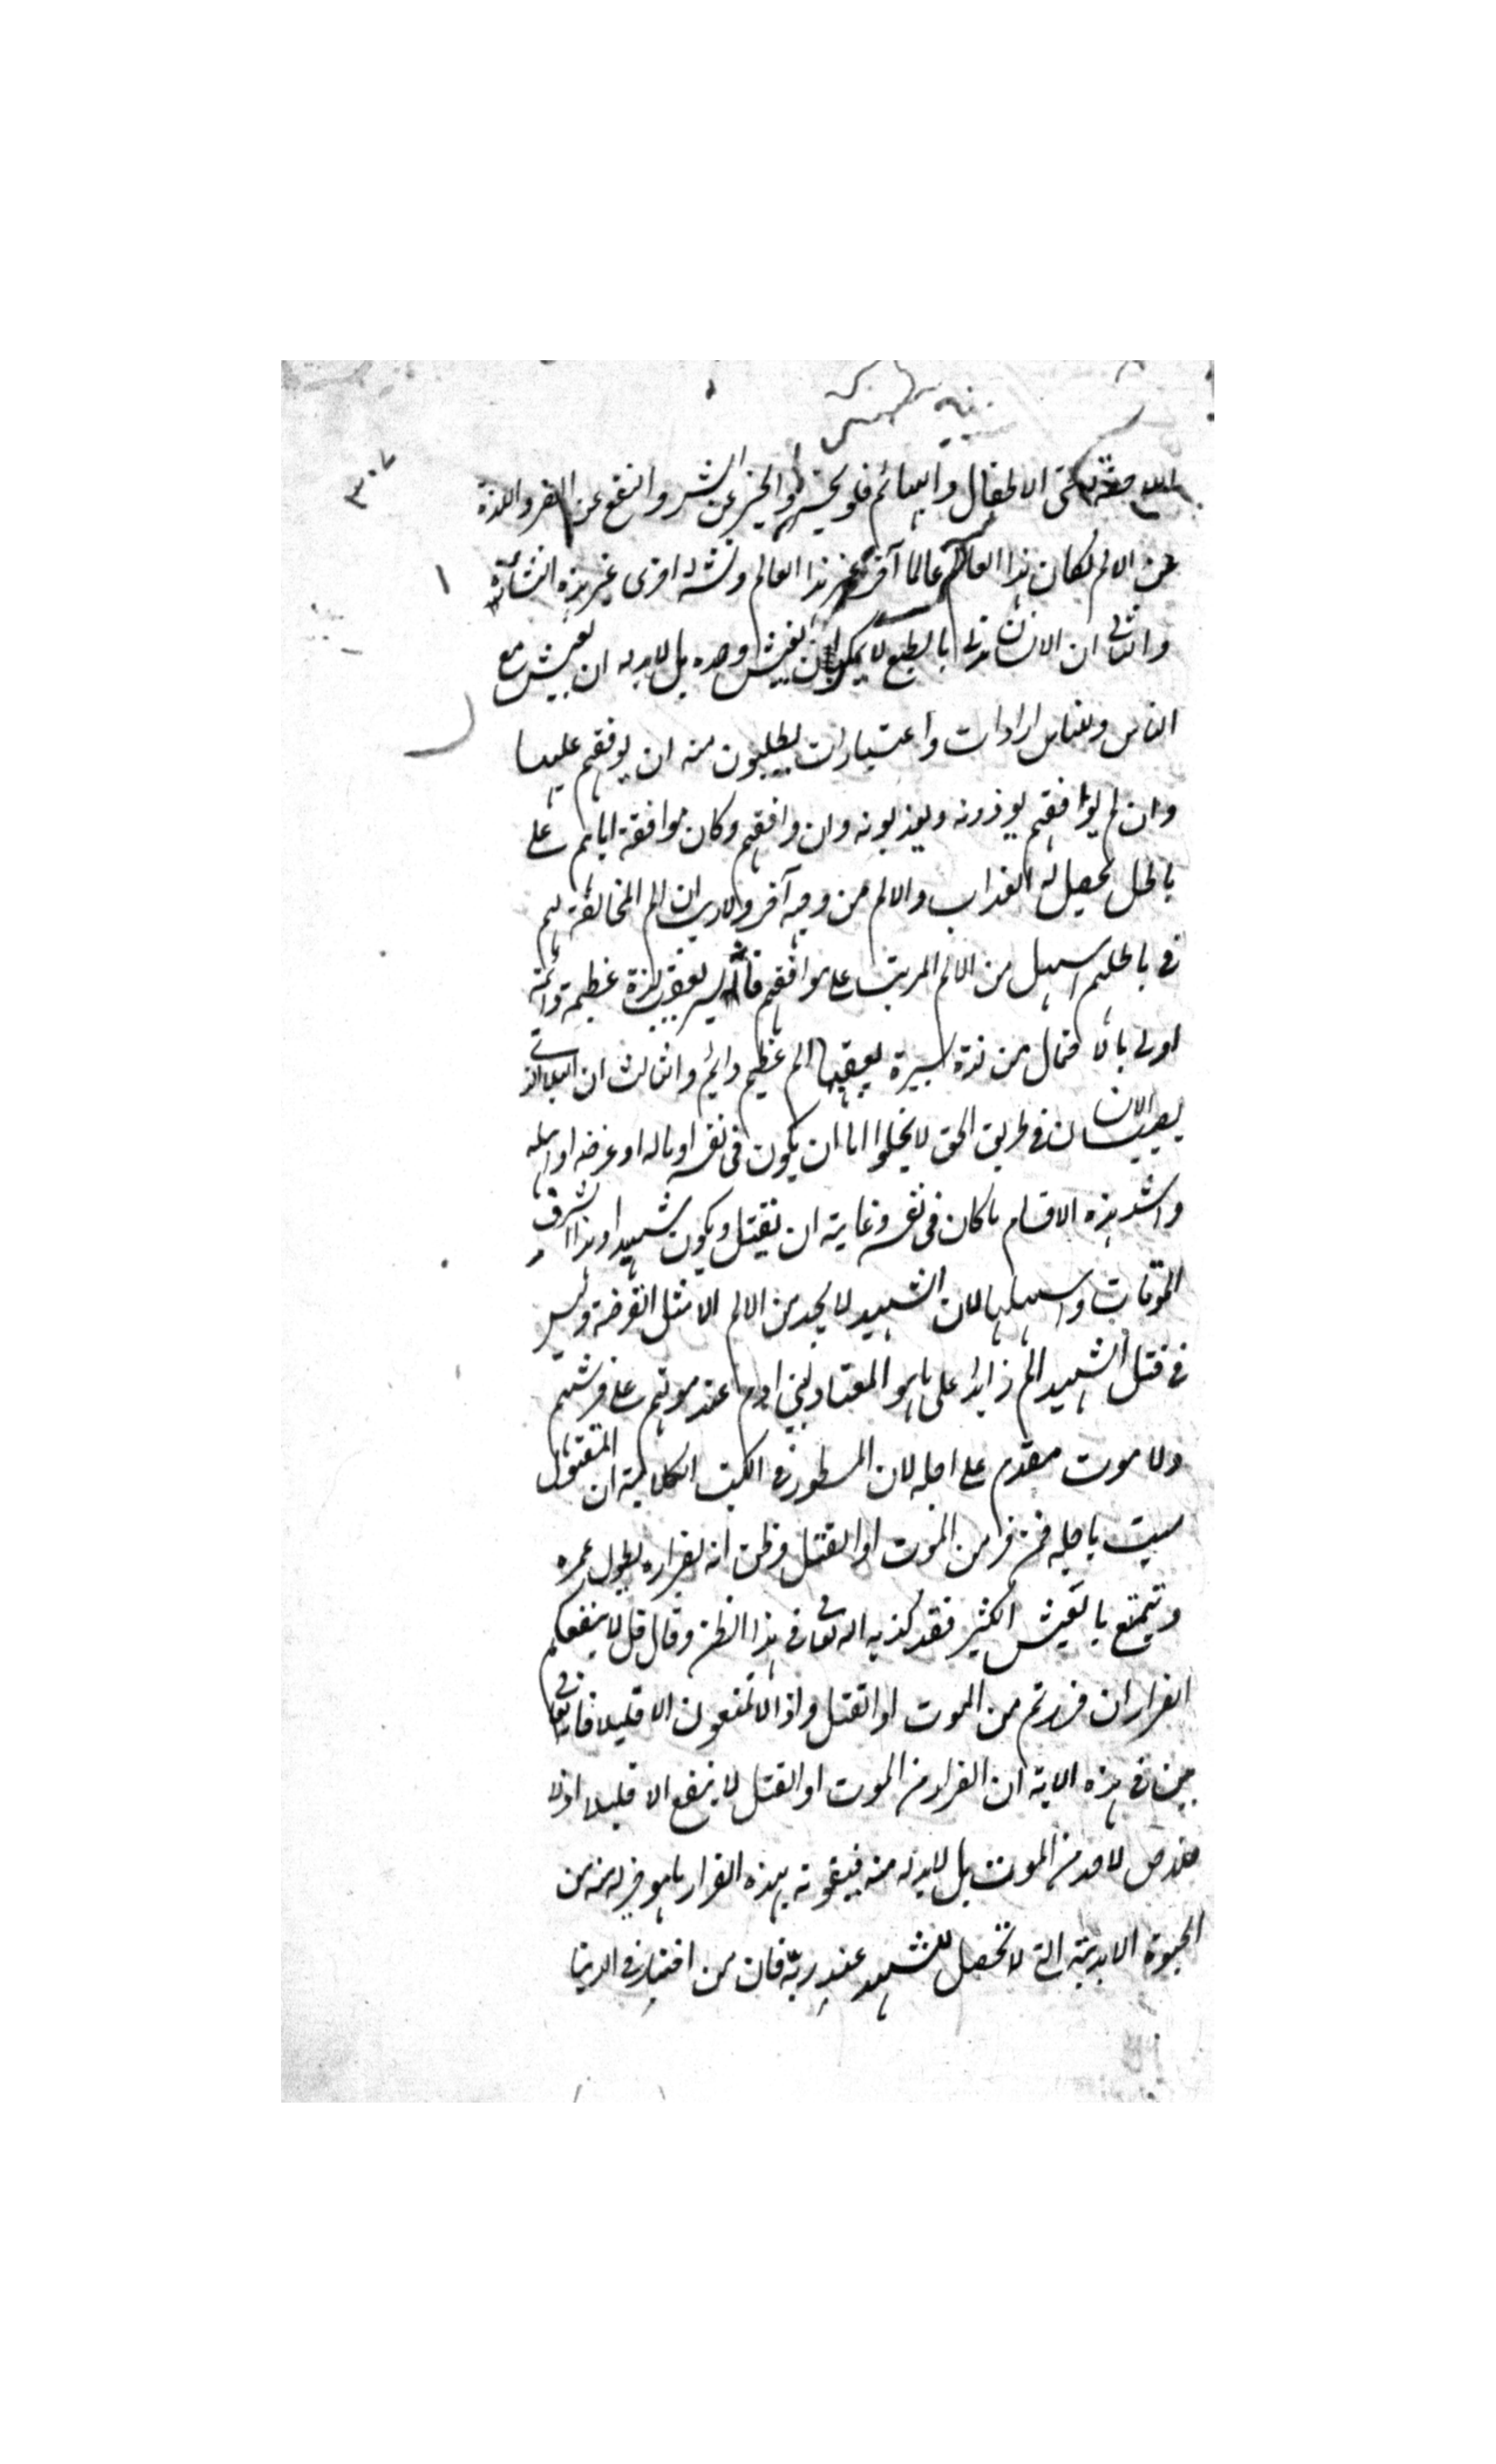 ٣٠٧
حتى الاطفال والبهائم فلو تجرد الخير عن الشر والنفع عن الضر واللذة
عن الالم لكان هذا العالم عالما آخر غير هذا العالم ونشاة اخرى غير هذه النشأة
والثانى ان الانسان مدنى بالطبع لا يمكن ان يعيش وحده بل لابد له ان يعيش مع
الناس وللناس ارادات واعتبارات يطلبون منه ان يوفقهم عليها
وان لم يوافقهم يوذونه ويعذبونه وان وافقهم وكان موافقة اياهم على
باطل يحصل له العذاب والالم من وجه آخر ولا ريب ان الم المخالفة لهم
فى باطلهم اسهل من الالم المرتب على موافقهم فالم يسير يعقب لذة عظيمة دائمة
اولى بالاحتمال من لذة يسيرة يعقبها الم عظيم دايم والثالث ان البلاء الذى
يصيب الانسان فى طريق الحق لا يخلوا اما ان يكون فى نفسه او ماله او عرضه او اهله
واشد هذه الاقسام ما كان فى نفسه وغايته ان يقتل ويكون شهيدا وهذا اشرف
الموتات واسهلها لان الشهيد لا يجد من الالم الا مثل القرصة وليس
فى قتل الشهيد الم زايدا على ما هو المعتاد لبنى ادم عند موتهم على فرشهم
ولا موت مقدم على اجله لان المسطور فى الكتب الكلامية ان المقتول
ميت باجله فمن فر من الموت او القتل وظن انه بفراره يطول عمره
ويتمتع بالعيش الكثير فقد كذبه الله تعالى فى هذا الظن وقال قل لا ينفعكم
الفرار ان فررتم من الموت او القتل واذا لا تمتعون الا قليلا فانه تعالى
بين فى هذه الاية ان الفرار من الموت او القتل لا ينفع الا قليلا اذ لا
خلاص لاحد من الموت بل لابد له منه فيفوته بهذه الفرار ما هو خير له منه من
الحيوة الابدية التى لا تحصل للشهيد عند ربه فان من اختار فى الدنيا